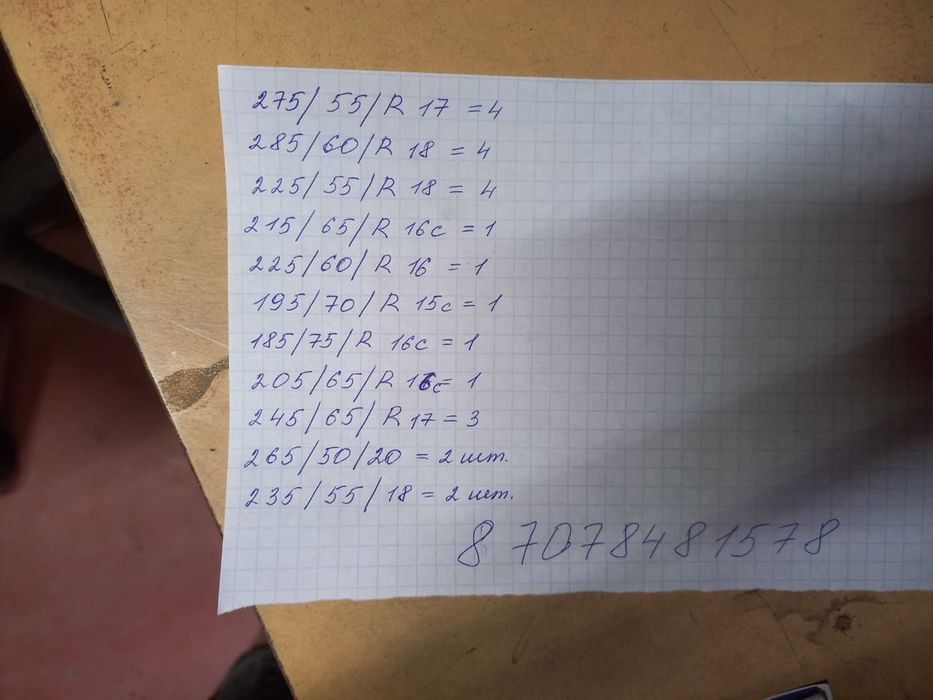 275/ 55/ R 17 = 4
285/60/R 18 = 4
225/ 55/R 18 = 4
215/ 65/ R 16c = 1
225/60/ R 16 = 1
195/70/ R 15c = 1
185/75/ R 16c = 1
205/65/R 16c = 1
245/65/ R 17 = 3
265/50/20 = 2 шт.
235/55/18 = 2 шт.
8 7078481578